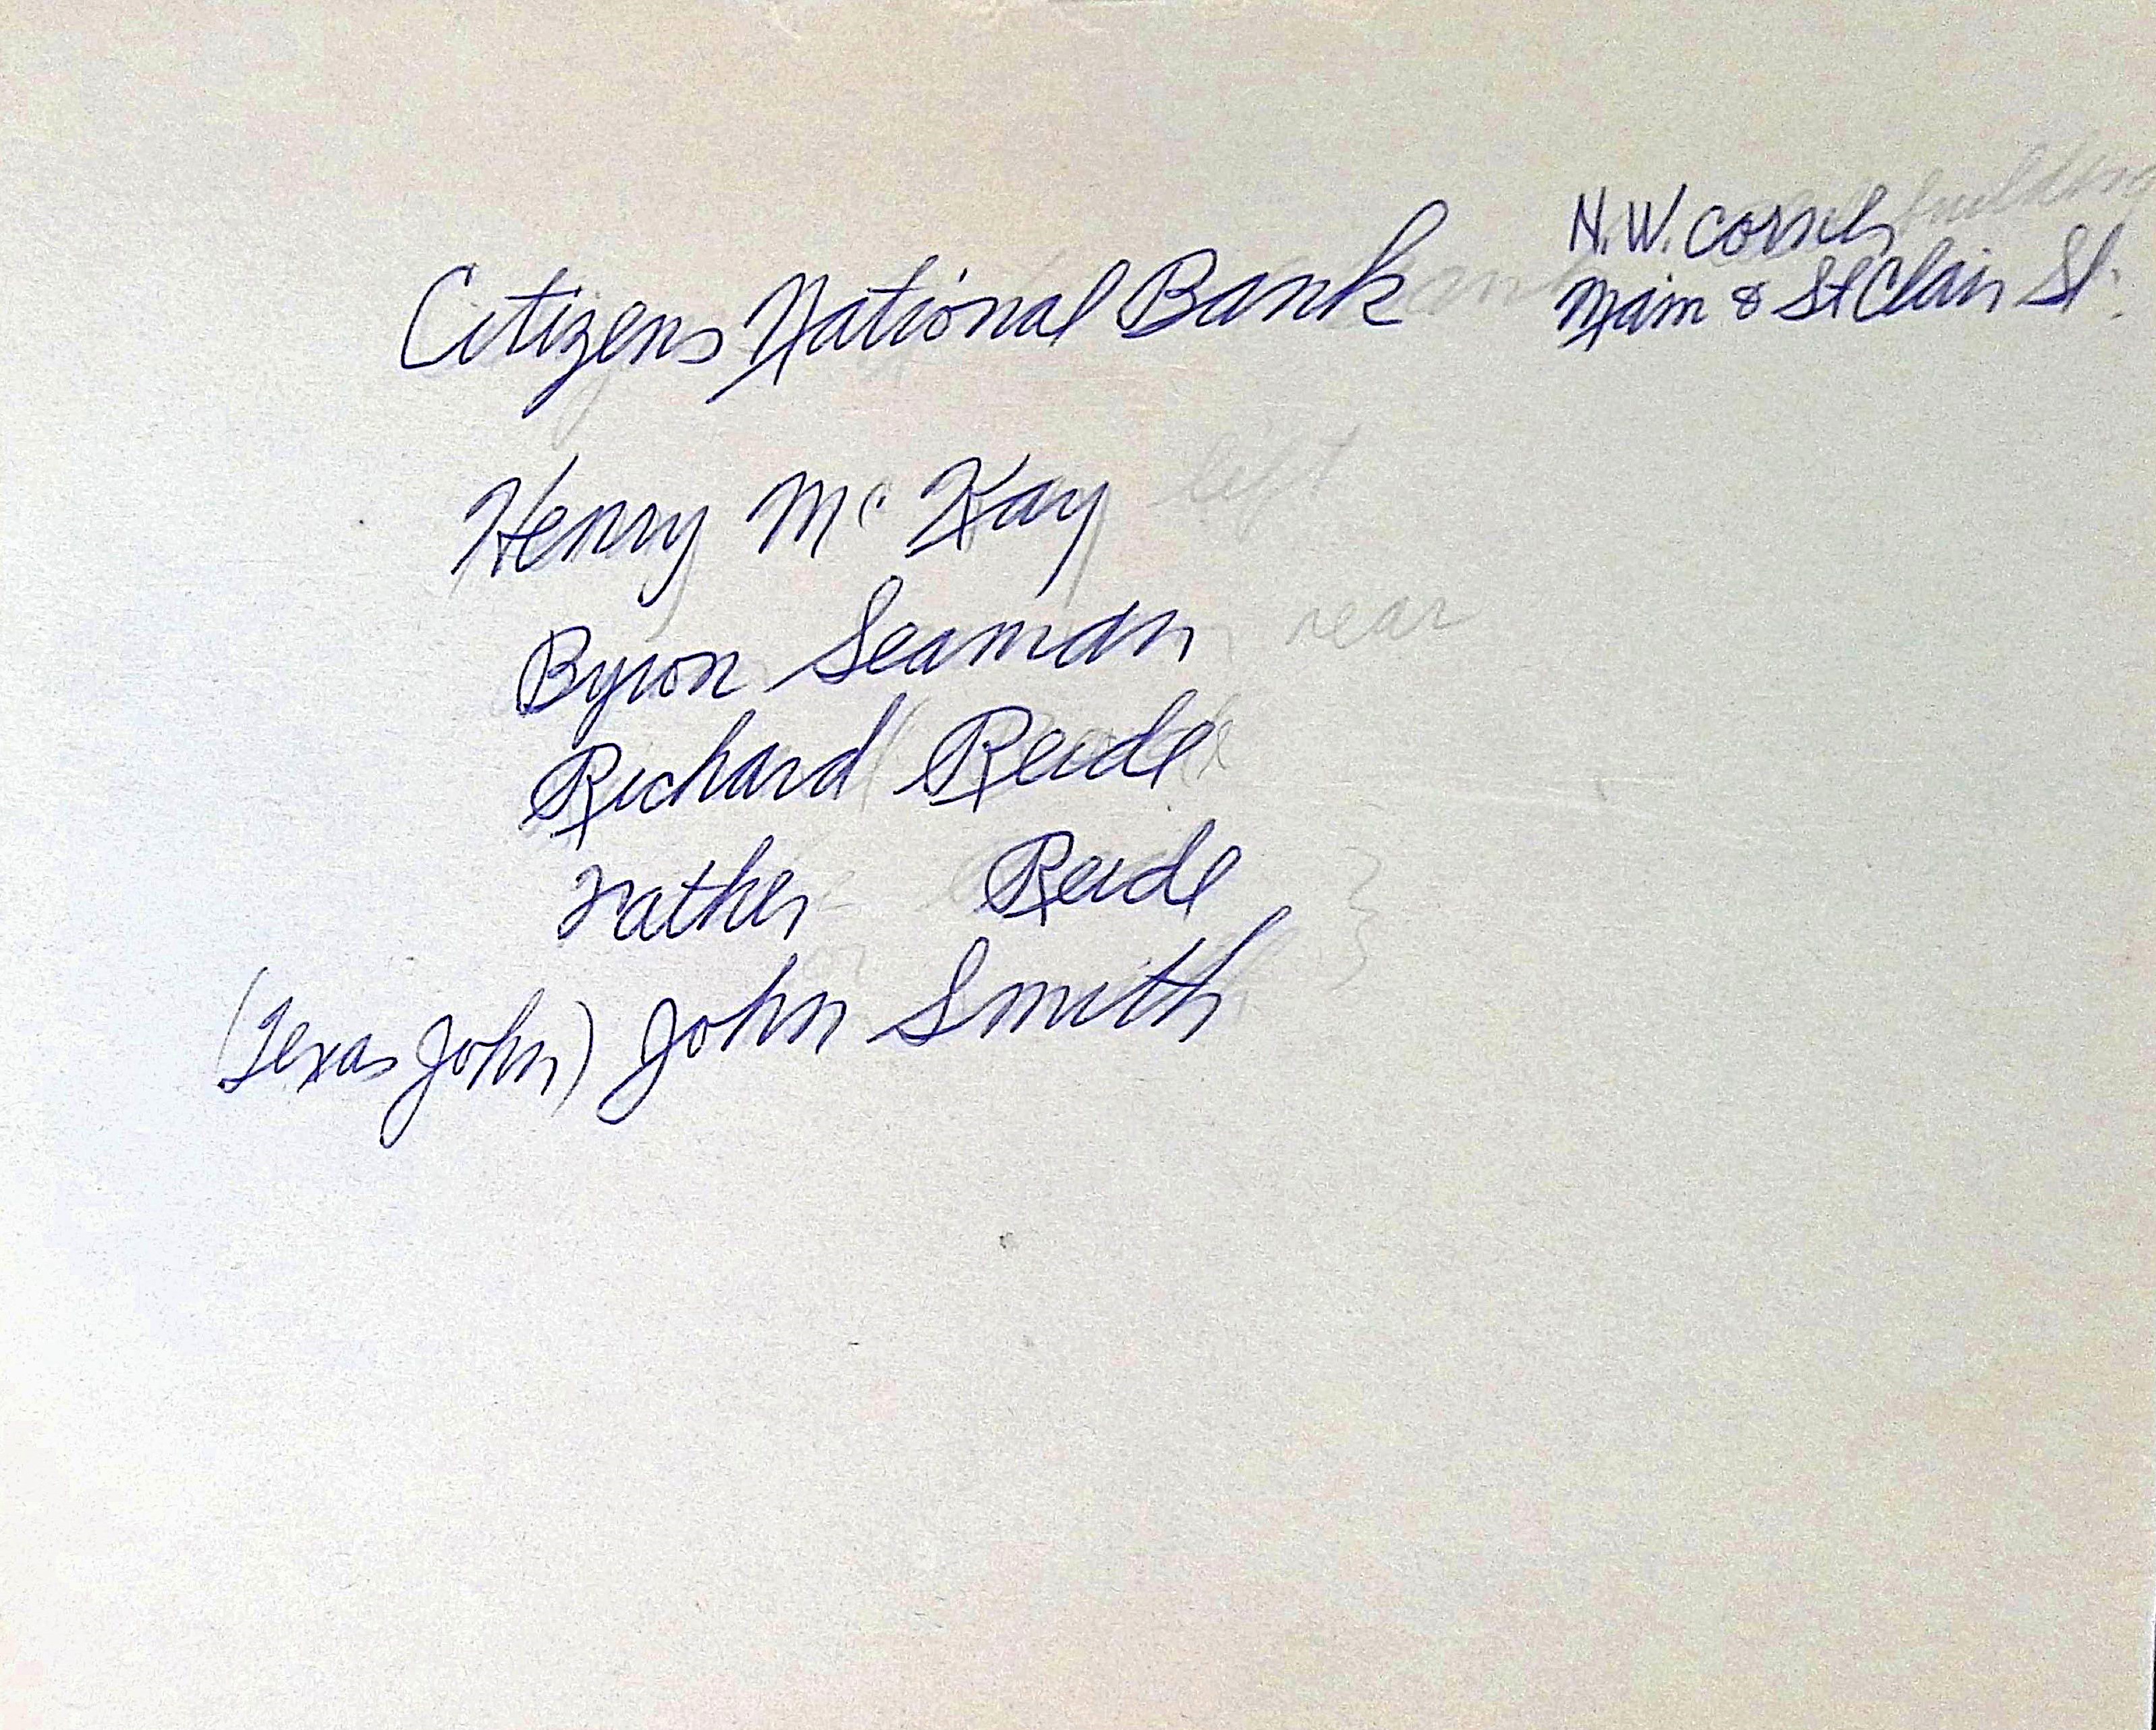 Citizens National Bank
N.W. corner building
Main & St Clair St.
Henry Mc Kay left
Byron Seaman rear
Richard Reide
Father Reide
(Texas John) John Smith